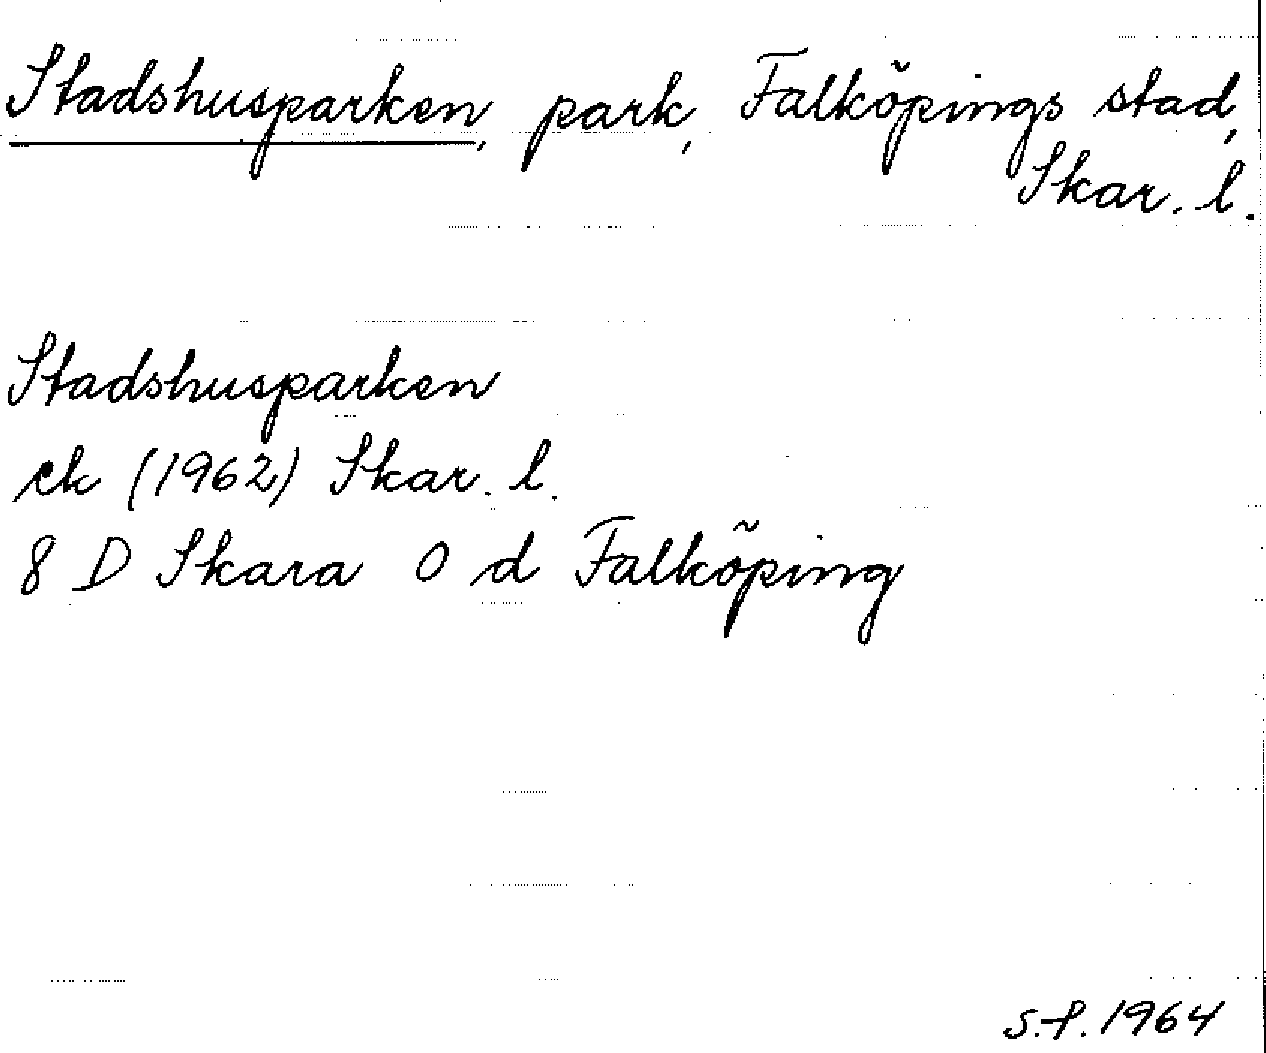 Stadshusparken, park, Falköpings stad,
Skar. l.
Stadshusparken
ek (1962) Skar. l.
8 D Skara 0 d Falköping
S.f. 1964